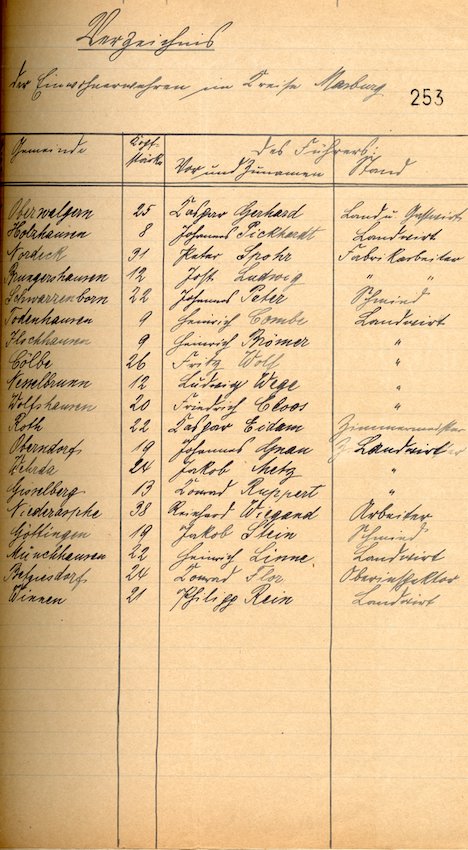 Verzeichnis
der Einwohnerwehren im Kreise Marburg.
253
Gemeinde Kopf- des Führers:
stärke Vor und Zunamen Stand
Oberwalgern 25 Caspar Gerhard Landw u. Gastwirt
Holzhausen 8 Johannes Pickhardt Landwirt
Nordeck 31 Peter Spohr Fabrikarbeiter
Rüngershausen 12 Johs. Ludwig " "
Schwarzenborn 22 Johannes Peter Schmied
Todenhausen 9 Heinrich Combe Landwirt
Ilschhausen 9 Heinrich Brömer "
Cölbe 26 Fritz Wolf "
Nesselbrunn 12 Ludwig Wege "
Wolfshausen 20 Friedrich Cloos "
Roth 22 Caspar Eidam Zimmermeister
Oberndorf 19 Johannes Gnau Landwirt
Wehrda 24 Jakob Metz "
Gisselberg 13 Konrad Ruppert "
Niederasphe 38 Reinhard Wiegand Arbeiter
Göttingen 19 Jakob Stein Schmied
Münchhausen 22 Heinrich Linne Landwirt
24 Konrad Flor Oberinspektor
Winnen 21 Philipp Rein Landwirt